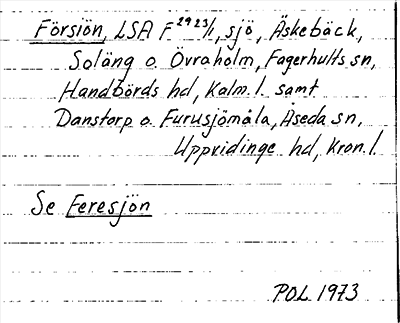 Försiön, LSA F²⁹²³/1, sjö, Äskebäck,
Soläng o. Övraholm, Fagerhults sn,
Handbörds hd, Kalm. l. samt
Danstorp o. Furusjömåla, Åseda sn,
Uppvidinge hd, Kron. l.
Se Feresjön
POL 1973